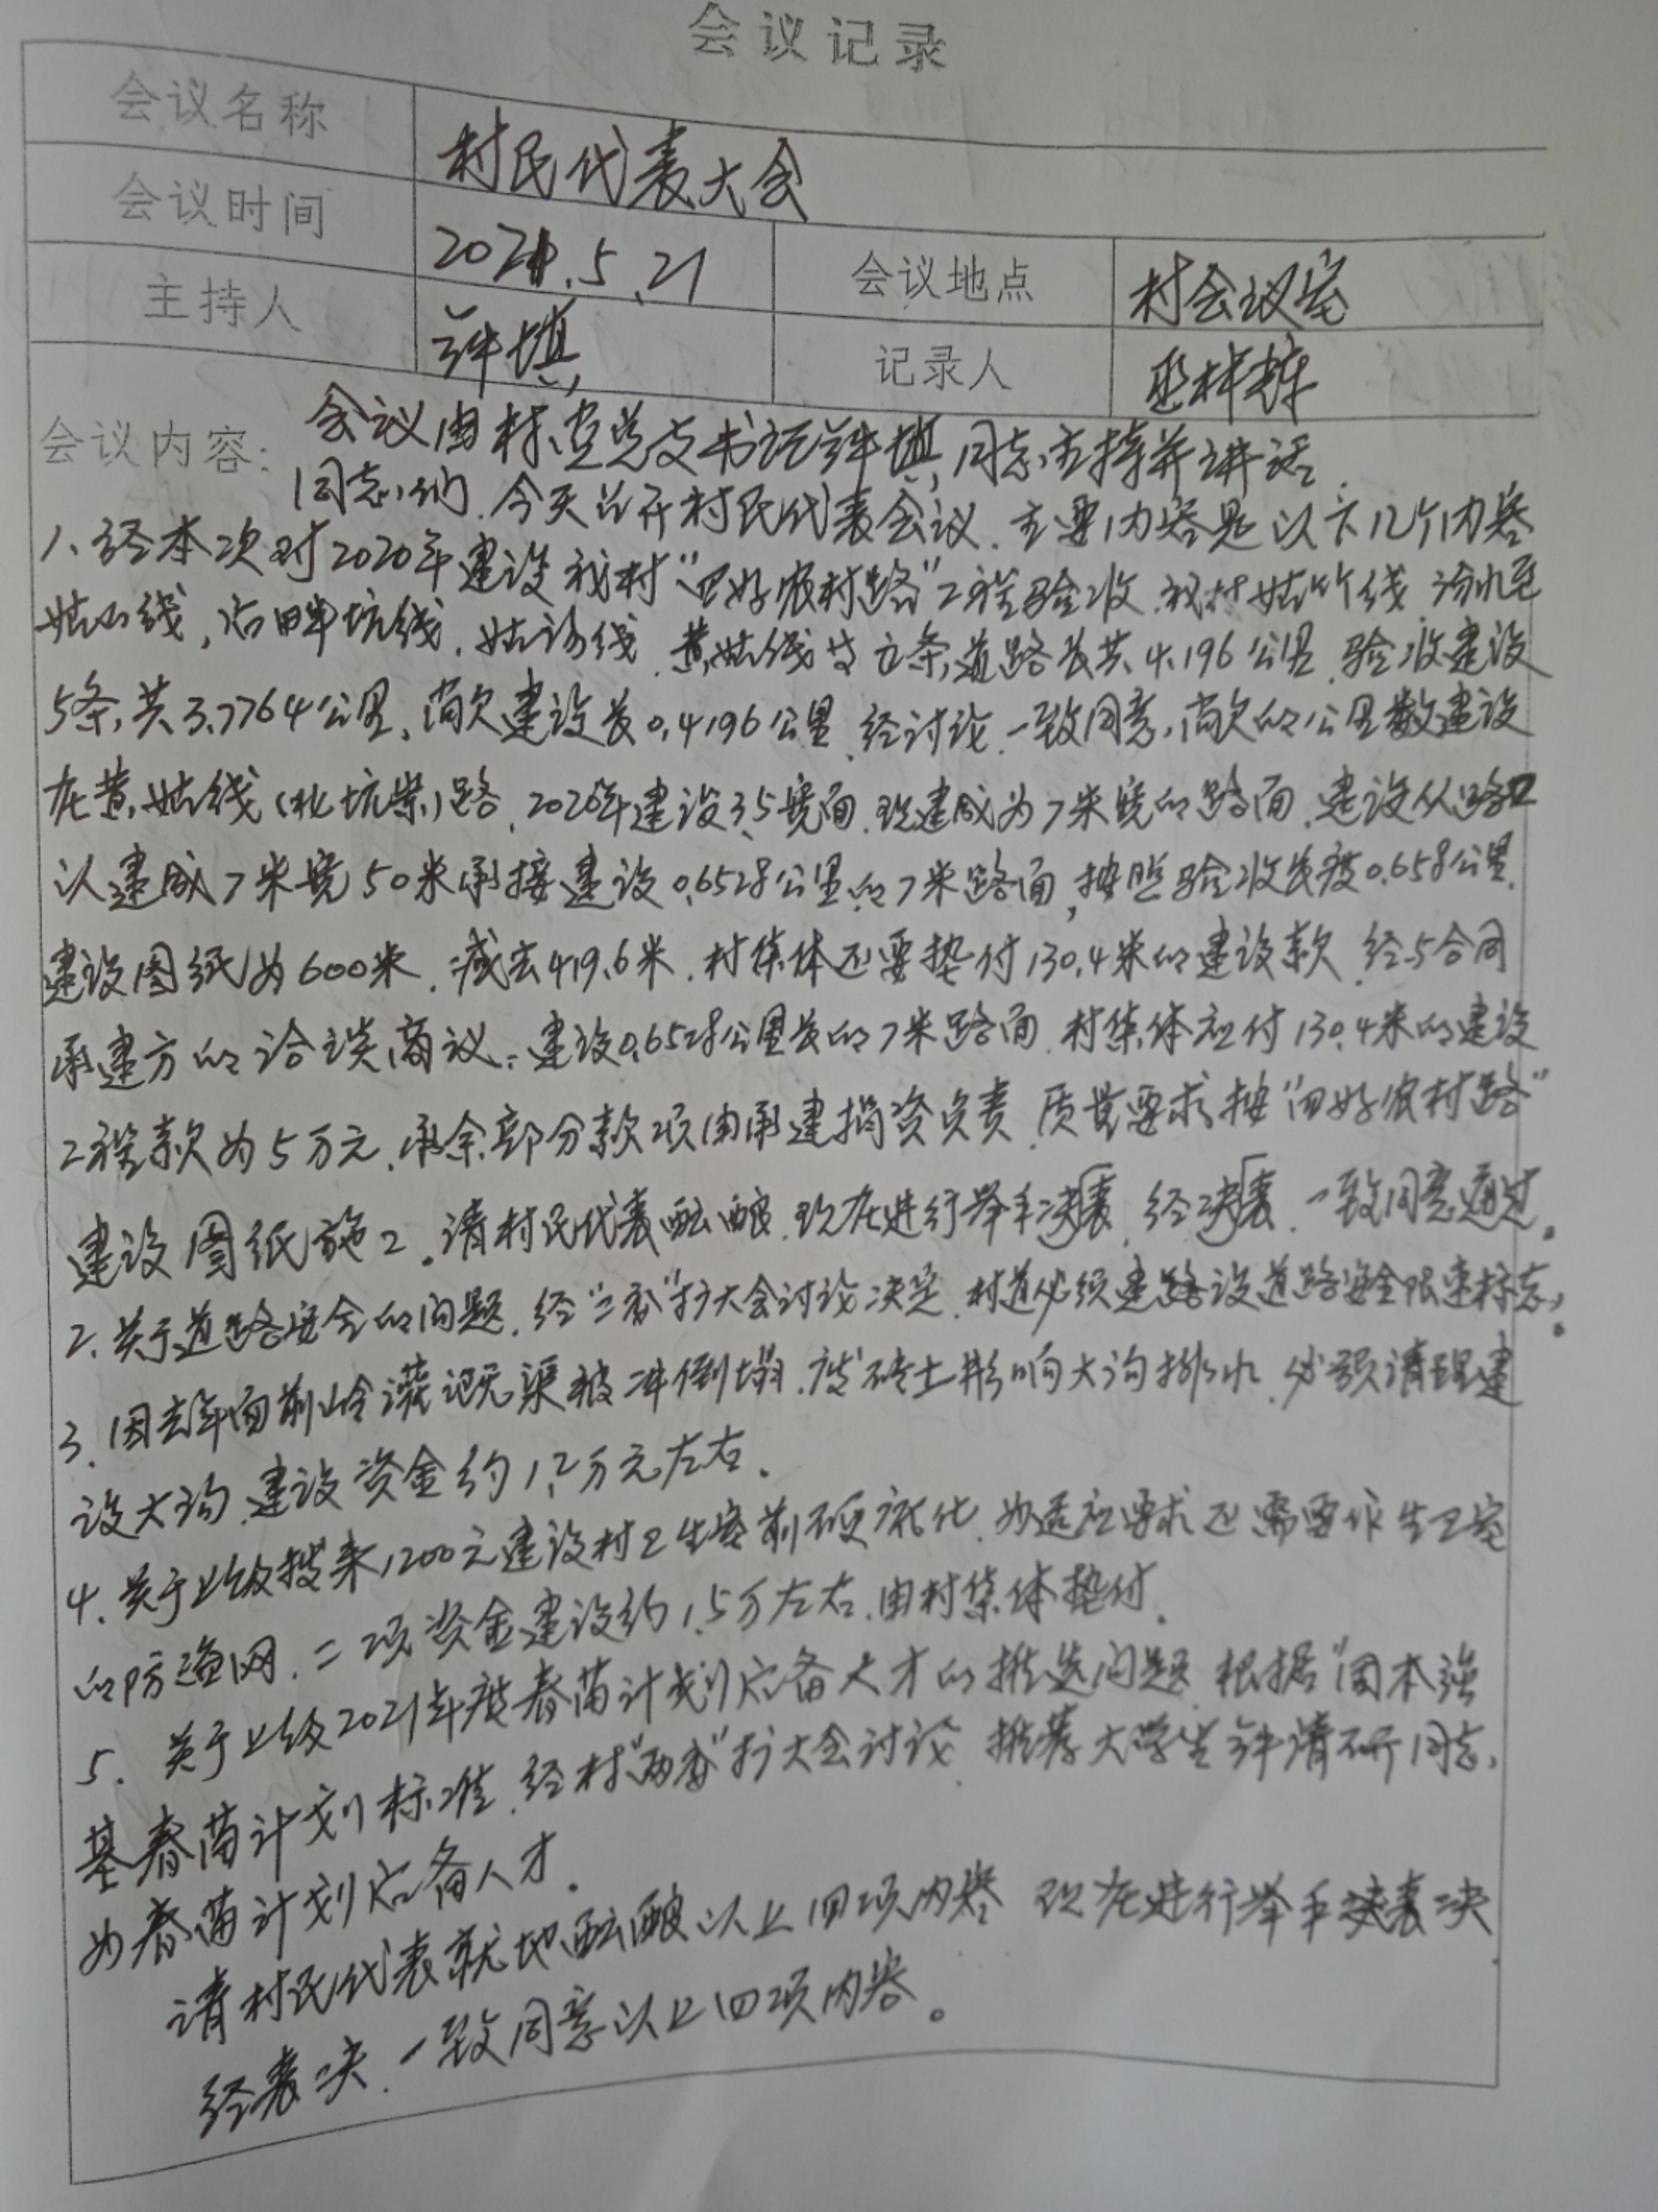 会议记录
会议名称 村民代表大会
会议时间 2021.5.21 会议地点 村会议室
主持人 记录人
会议内容: 会议由村党总支书记 同志主持并讲话.
同志们.今天召开村民代表会议.主要内容是以下几个内容
1、经本次对2020年建设我村"四好农村路"工程验收.我村姑竹线
线, 坑线.姑 线.黄姑线 条,道路长共4.196公里.验收建设
5条,共3.7764公里,尚欠建设长0.4196公里.经讨论.一致同意,尚欠的公里数建设
在黄姑线( 坑 )路.2020年建设3.5宽面.现建成为7米宽的路面.建设从路口
以建成7米宽50米承接建设0.6528公里的7米路面,按照验收长度0.658公里.
建设图纸为600米.减去419.6米.村集体还要垫付130.4米的建设款.经与合同
承建方的洽谈商议:建设0.6528公里长的7米路面.村集体应付130.4米的建设
工程款为5万元.承余部分款项由承建捐资负责.质量要求按"四好农村路"
建设图纸施工.请村民代表酝酿.现在进行举手决表.经决表.一致同意通过.
2.关于道路安全的问题.经"三委"扩大会讨论决定.村道必须建路设道路安全限速标志.
3.因去年面前岭灌 渠被冲倒塌.废砖土影响大沟排水.必须清理建
设大沟.建设资金约1.2万元左右.
4.关于上级拨来1200元建设村卫生室前硬 化.为适应要求还需要作生卫室
的防 网.二项资金建设约1.5万左右.由村集体垫付.
5.关于上级2021年度春苗计划 备人才的推选问题.根据"固本强
基春苗计划标准.经村"两委"扩大会讨论.推荐大学生 同志,
为春苗计划 备人才.
请村民代表就地酝酿以上四项内容.现在进行举手 表决
经表决.一致同意以上四项内容。